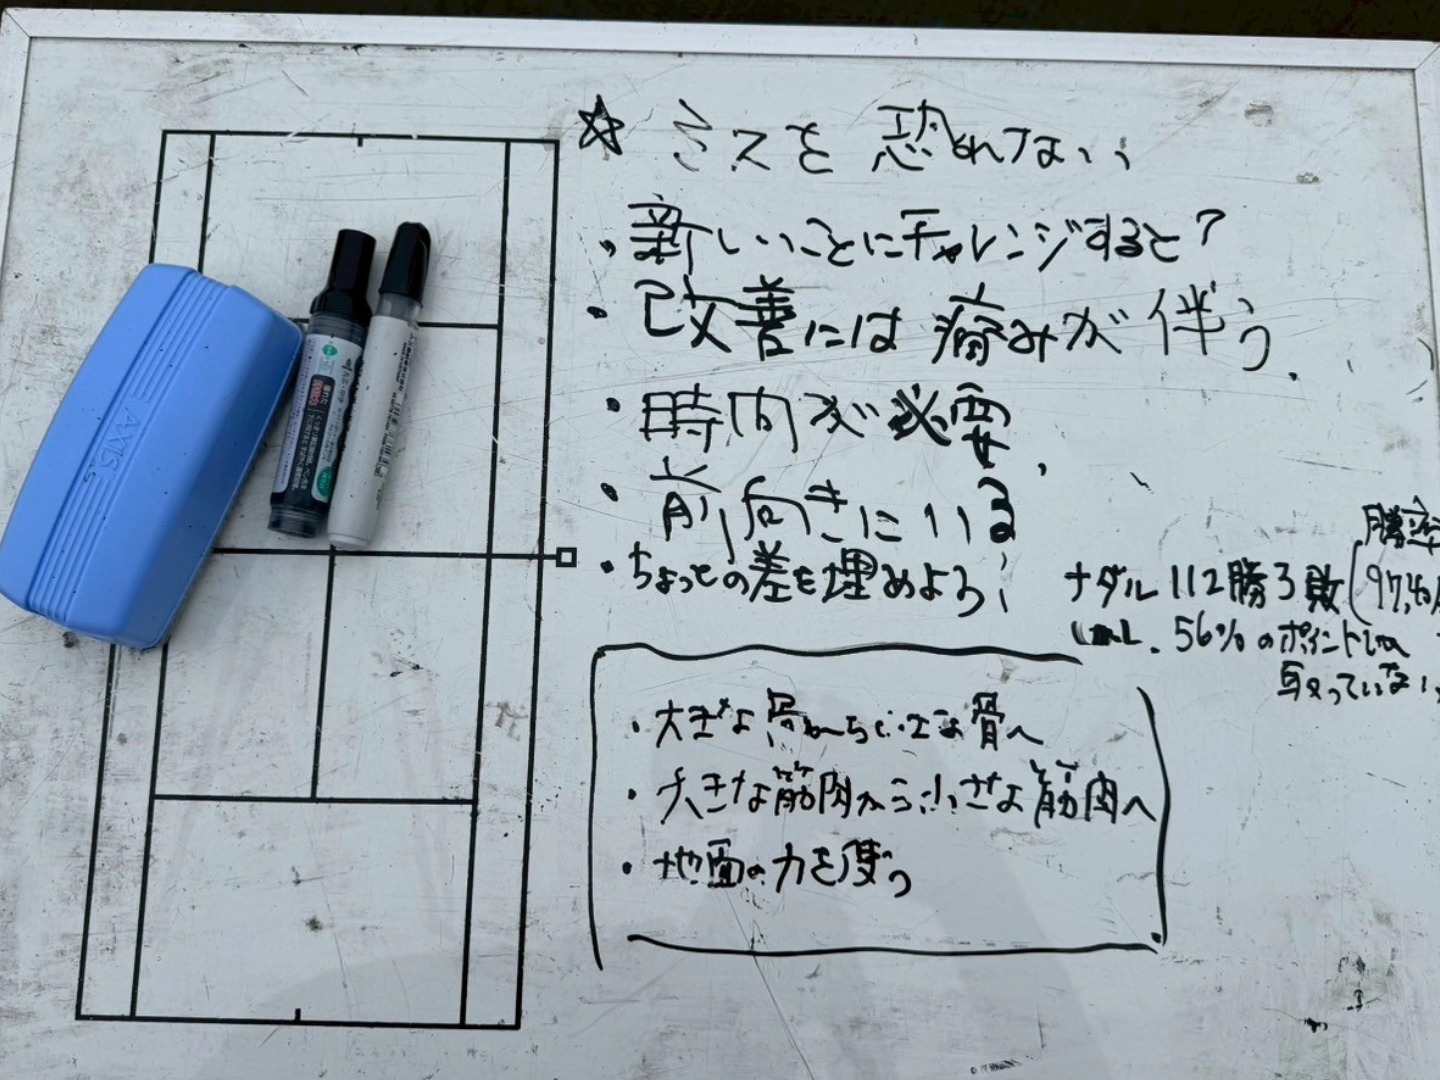 ☆ ミスを恐れない
・新しいことにチャレンジすると?
・改善には痛みが伴う.
・時間が必要.
・前向きにいる
・ちょっとの差を埋めよう!
勝率
ナダル 112勝3敗 (97,4%
しかし、56%のポイントしか
取っていない、
・大きな骨から小さな骨へ
・大きな筋肉から小さな筋肉へ
・地面の力を使う
AXIS